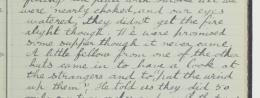 were nearly choked, and our eyes
watered, they didn't get the fire
alight though. We were promised
some supper though it never came.
A little fellow from one of the other
huts came in to have a look at
the strangers and to "put the wind
up them". He told us they did 50